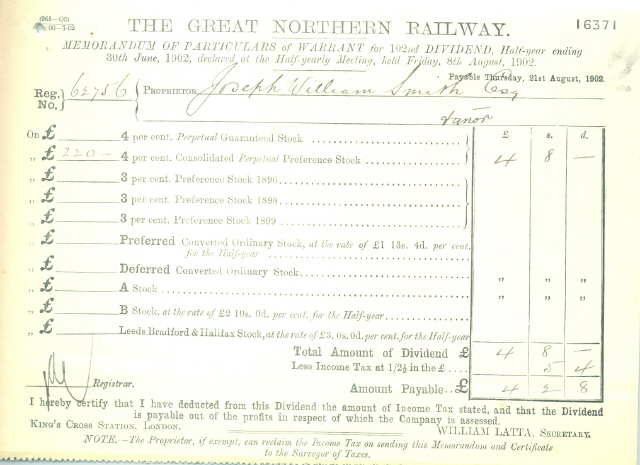 THE GREAT NORTHERN RAILWAY.
16371
MEMORANDUM OF PARTICULARS of WARRANT for 102nd DIVIDEND, Half-year ending
30th June, 1902, declared at the Half-yearly Meeting, held Friday, 8th August, 1902.
Payable Thursday, 21st August, 1902.
Reg. No. 62756 PROPRIETOR Joseph William Smith Esq
On £ 4 per cent. Perpetual Guaranteed Stock £ s. d.
„ £ 220 – 4 per cent. Consolidated Perpetual Preference Stock 4 8 —
„ £ 3 per cent. Preference Stock 1896
„ £ 3 per cent. Preference Stock 1898
„ £ 3 per cent. Preference Stock 1899
„ £ Preferred Converted Ordinary Stock, at the rate of £1 13s. 4d. per cent.
for the Half-year
„ £ Deferred Converted Ordinary Stock „ „
„ £ A Stock „ „
„ £ B Stock, at the rate of £2 10s. 0d. per cent. for the Half-year
„ £ Leeds Bradford & Halifax Stock, at the rate of £3, 0s. 0d. per cent. for the Half-year
Total Amount of Dividend £ 4 8 —
Less Income Tax at 1/2½ in the £ 5 4
Registrar.
Amount Payable £ 4 2 8
I hereby certify that I have deducted from this Dividend the amount of Income Tax stated, and that the Dividend
is payable out of the profits in respect of which the Company is assessed.
KING'S CROSS STATION, LONDON.
WILLIAM LATTA, SECRETARY.
NOTE.—The Proprietor, if exempt, can reclaim the Income Tax on sending this Memorandum and Certificate
to the Surveyor of Taxes.